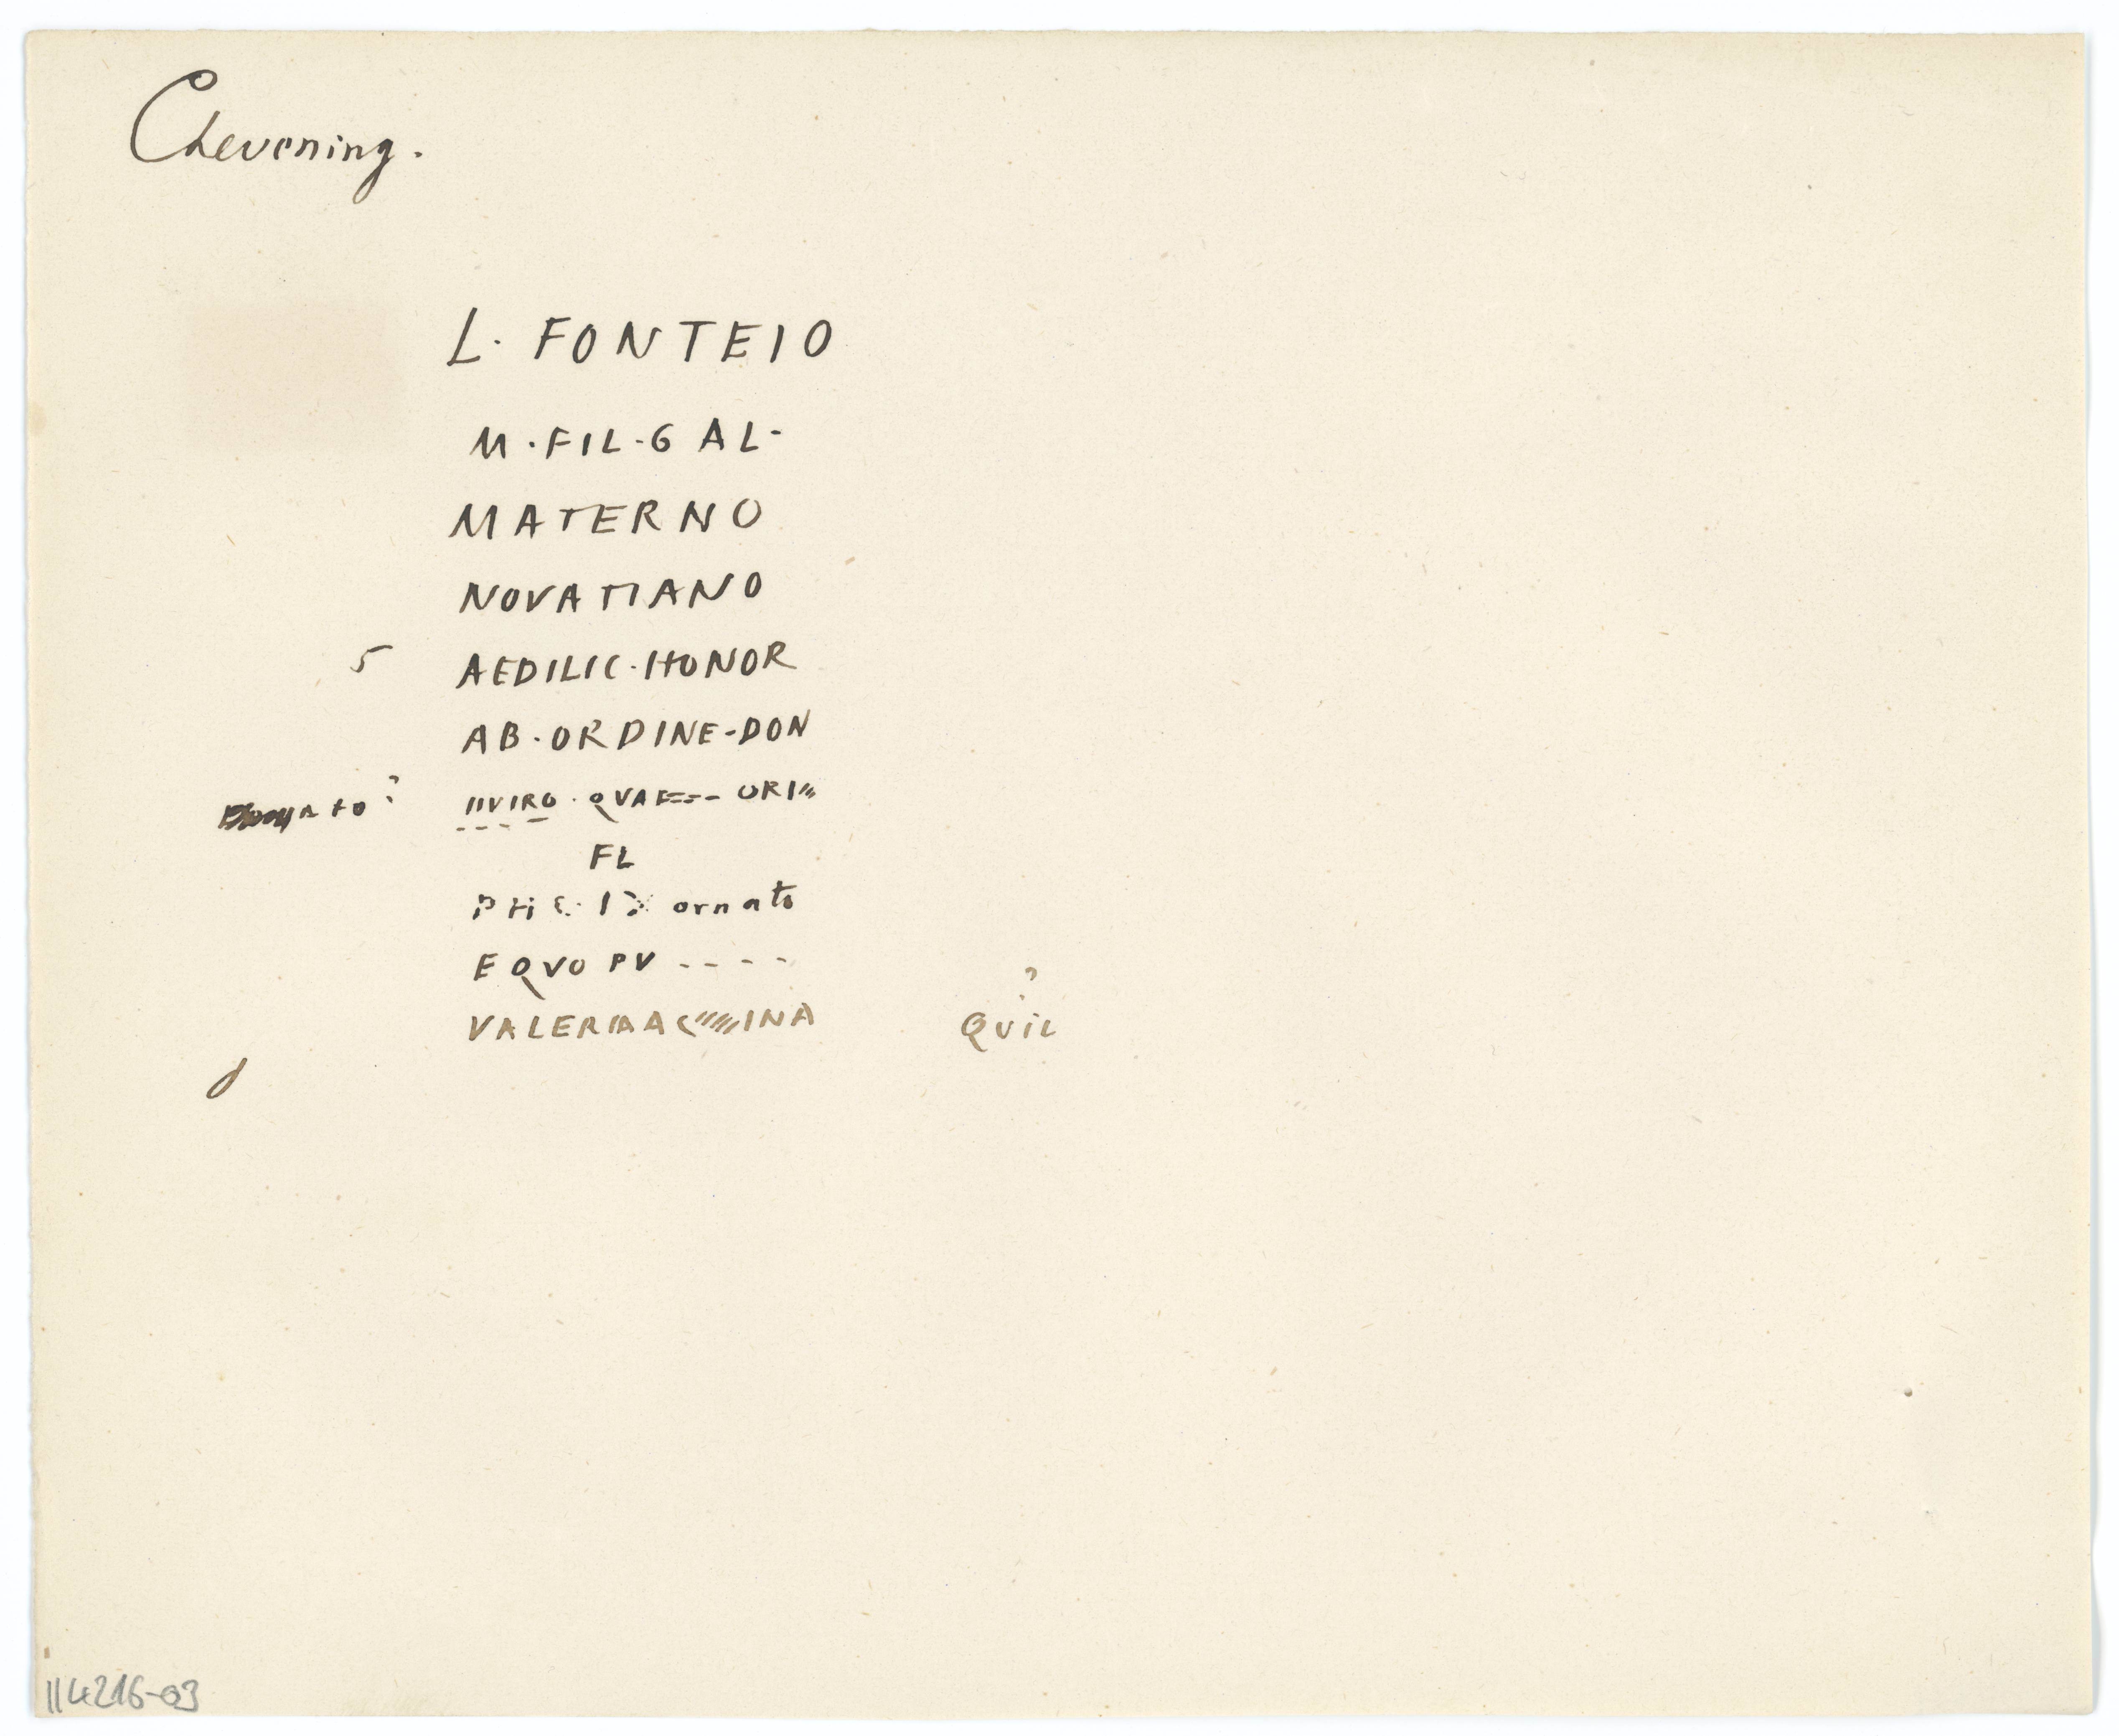 Chevening.
L. FONTEIO
M.FIL.GAL.
MATERNO
NOVATIANO
5 AEDILIC.HONOR
AB.ORDINE-DON
IIVIRO.QVAE--- ORI
FL
ornato
EQVO PV ----
VALERIAA C INA ? QUIL
II 4216-03